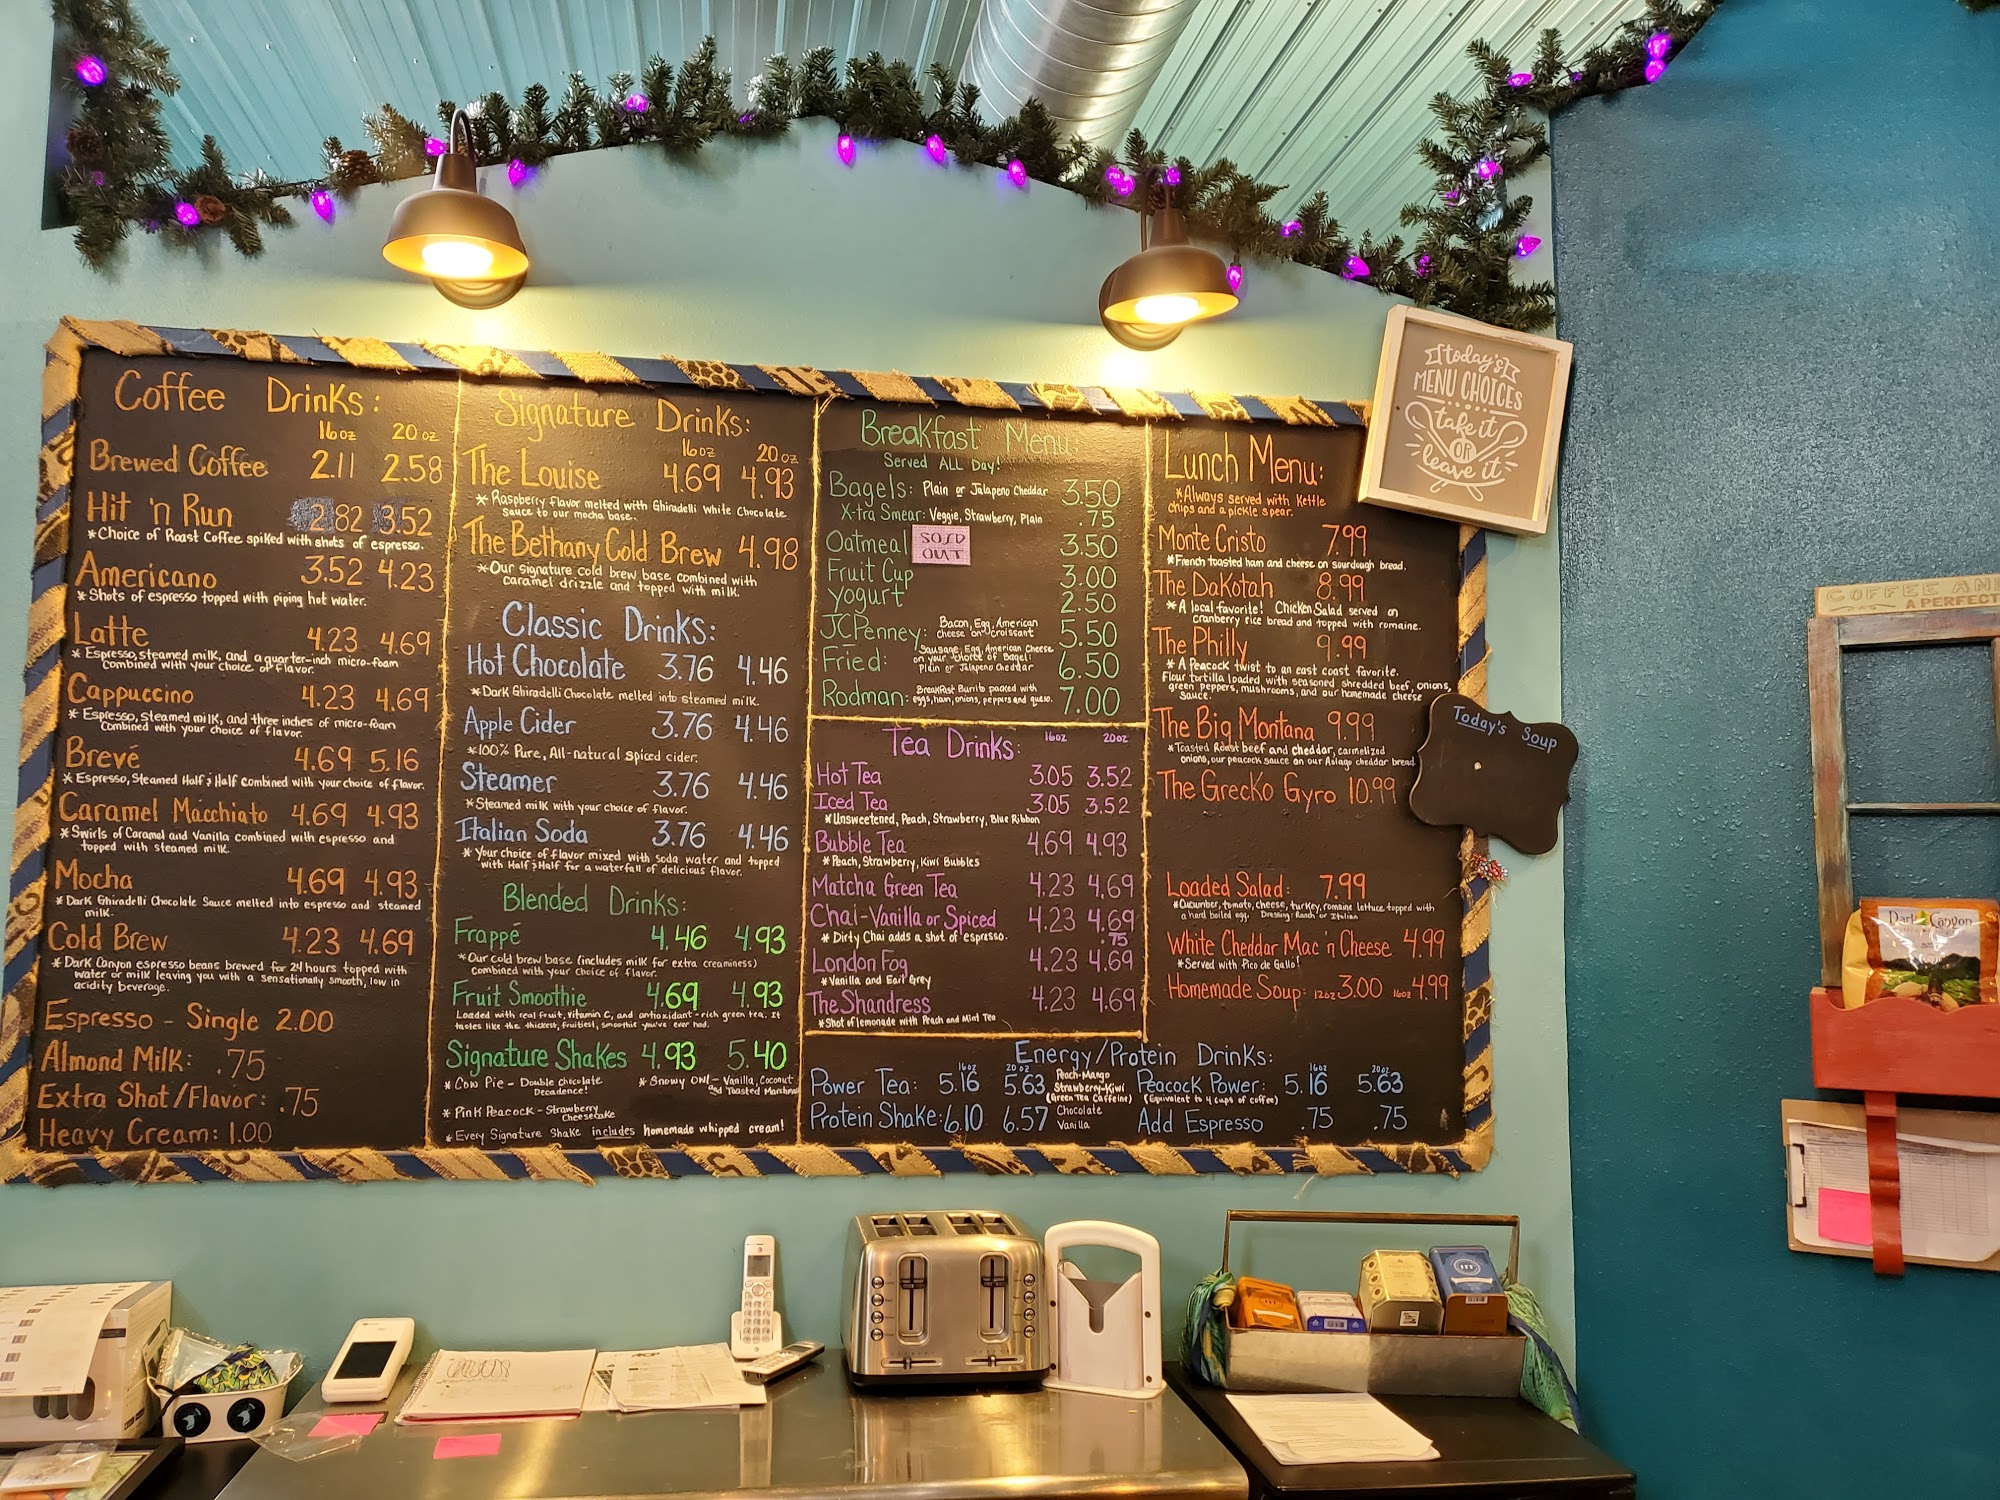 Coffee Drinks:
16oz 20oz
Brewed Coffee 2.11 2.58
Hit 'n Run 2.82 3.52
*Choice of Roast Coffee spiked with shots of espresso.
Americano 3.52 4.23
*Shots of espresso topped with piping hot water.
Latte 4.23 4.69
* Espresso, steamed milk, and a quarter-inch micro-foam
combined with your choice of flavor.
Cappuccino 4.23 4.69
* Espresso, steamed milk, and three inches of micro-foam
combined with your choice of flavor.
Brevé 4.69 5.16
*Espresso, Steamed Half & Half combined with your choice of flavor.
Caramel Macchiato 4.69 4.93
*Swirls of Caramel and Vanilla combined with espresso and
topped with steamed milk.
Mocha 4.69 4.93
*Dark Ghiradelli Chocolate Sauce melted into espresso and steamed
milk.
Cold Brew 4.23 4.69
*Dark Canyon espresso beans brewed for 24 hours topped with
water or milk leaving you with a sensationally smooth, low in
acidity beverage.
Espresso - Single 2.00
Almond Milk: .75
Extra Shot/Flavor: .75
Heavy Cream: 1.00
Signature Drinks:
16oz 20oz
The Louise 4.69 4.93
* Raspberry flavor melted with Ghiradelli white Chocolate
sauce to our mocha base.
The Bethany Cold Brew 4.98
*Our signature cold brew base combined with
caramel drizzle and topped with milk.
Classic Drinks:
Hot Chocolate 3.76 4.46
*Dark Ghiradelli Chocolate melted into steamed milk.
Apple Cider 3.76 4.46
*100% Pure, All-natural spiced cider.
Steamer 3.76 4.46
*Steamed milk with your choice of flavor.
Italian Soda 3.76 4.46
* Your choice of flavor mixed with soda water and topped
with Half & Half for a waterfall of delicious flavor.
Blended Drinks:
Frappé 4.46 4.93
*Our cold brew base (includes milk for extra creaminess)
combined with your choice of flavor.
Fruit Smoothie 4.69 4.93
Loaded with real fruit, vitamin C, and antioxidant-rich green tea. It
tastes like the thickest, fruitiest, smoothie you've ever had.
Signature Shakes 4.93 5.40
* Cow Pie - Double chocolate
Decadence!
* Snowy Owl - Vanilla, Coconut
and Toasted Marshmal
* Pink Peacock - Strawberry
Cheesecake
*Every Signature Shake includes homemade whipped cream!
Breakfast Menu:
Served ALL Day!
Bagels: Plain or Jalapeno Cheddar 3.50
X-tra Smear: Veggie, Strawberry, Plain .75
Oatmeal SOLD OUT 3.50
Fruit Cup 3.00
yogurt 2.50
JCPenney: Bacon, Egg, American
cheese on croissant 5.50
Fried: Sausage, Egg, American Cheese
on your choice of Bagel!
Plain or Jalapeno Cheddar 6.50
Rodman: Breakfast Burrito packed with
eggs, ham, onions, peppers and queso. 7.00
Tea Drinks: 16oz 20oz
Hot Tea 3.05 3.52
Iced Tea 3.05 3.52
*Unsweetened, Peach, Strawberry, Blue Ribbon
Bubble Tea 4.69 4.93
*Peach, Strawberry, Kiwi Bubbles
Matcha Green Tea 4.23 4.69
Chai-Vanilla or Spiced 4.23 4.69
* Dirty Chai adds a shot of espresso. .75
London Fog 4.23 4.69
*Vanilla and Earl Grey
The Shandress 4.23 4.69
*Shot of lemonade with Peach and Mint Tea
Lunch Menu:
*Always served with Kettle
chips and a pickle spear.
Monte Cristo 7.99
*French toasted ham and cheese on sourdough bread.
The Dakotah 8.99
*A local favorite! Chicken Salad served on
cranberry rice bread and topped with romaine.
The Philly 9.99
* A Peacock twist to an east coast favorite.
Flour tortilla loaded with seasoned shredded beef, onions,
green peppers, mushrooms, and our homemade cheese
sauce.
The Big Montana 9.99
*Toasted Roast beef and cheddar, carmelized
onions, our peacock sauce on our Asiago cheddar bread
The Grecko Gyro 10.99
Loaded Salad: 7.99
*Cucumber, tomato, cheese, turkey, romaine lettuce topped with
a hard boiled egg. Dressing: Ranch or Italian
White Cheddar Mac 'n Cheese 4.99
*Served with Pico de Gallo!
Homemade Soup: 12oz 3.00 16oz 4.99
Energy/Protein Drinks:
16oz 20oz 16oz 20oz
Power Tea: 5.16 5.63 Peach-Mango
Strawberry-Kiwi
(Green Tea Caffeine)
Peacock Power: 5.16 5.63
(Equivalent to 4 cups of coffee)
Protein Shake: 6.10 6.57 Chocolate
Vanilla
Add Espresso .75 .75
today's
MENU CHOICES
take it
OR
leave it
Today's Soup
COFFEE AN
A PERFECT
Dark Canyon